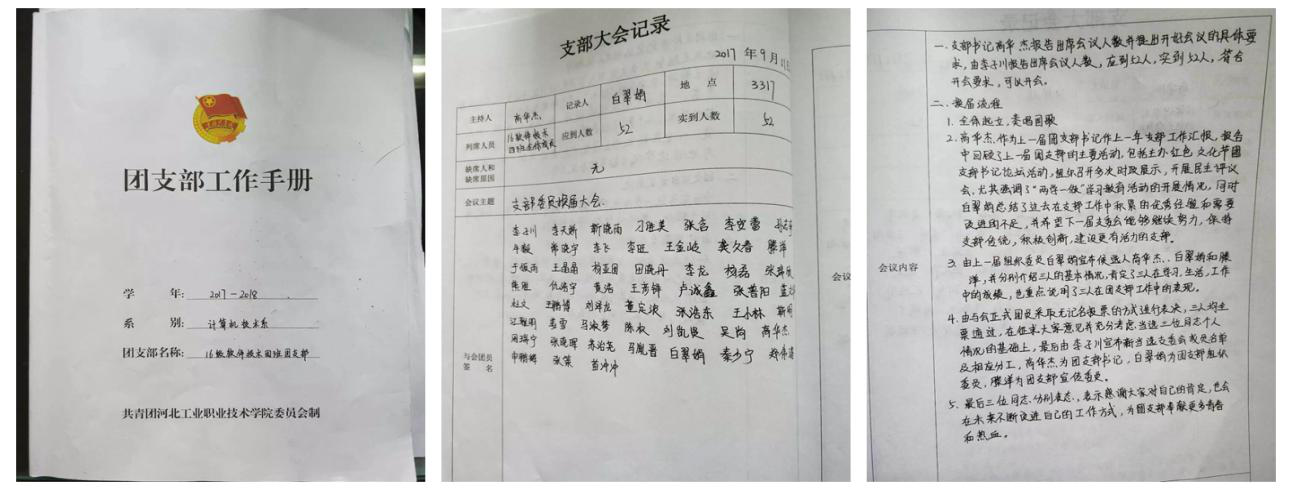 团支部工作手册
学 年: 2017-2018
系 别: 计算机技术系
团支部名称: 16级软件技术四班团支部
共青团河北工业职业技术学院委员会制
支部大会记录
2017 年 9 月
主持人 高华杰 记录人 白翠娟 地 点 3317
列席人员 16软件技术四班全体成员 应到人数 52 实到人数 52
缺席人和缺席原因 无
会议主题 支部委员换届大会
李子川 李天娇 靳晓雨 刁胜美 张含 李空雷
牛毅 常晓宇 李飞 李旺 王金岐 龚久春 滕洋
于振雨 王晶晶 杨亚团 田晓丹 李龙 杨磊
仇浩宇 黄浩 王芳铎 卢诚鑫 张善阳
赵文 王鹏博 刘洋龙 董定浓 张浩东 王小林
孟雪 马淑梦 陈权 刘凯良 吴尚 高华杰
周瑞宁 张晓晖 苏治尧 马胤晋 白翠娟 秦少宁
申鹏博 张策 苗冲冲
与会团员
签 名
会议内容
一、支部书记高华杰报告出席会议人数并提出开好会议的具体要
求,由李子川报告出席会议人数,应到52人,实到52人,符合
开会要求,可以开会。
二、换届流程
1. 全体起立,奏唱国歌
2. 高华杰作为上一届团支部书记作上一年支部工作汇报,报告
中回顾了上一届团支部的主要活动,包括主办红色文化节团
支部书记论坛活动,组织召开多次时政展示,开展民主评议
会,尤其强调了“两学一做”学习教育活动的开展情况,同时
白翠娟总结了过去在支部工作中积累的优秀经验和需要
改进的不足,并希望下一届支委会能够继续努力,保持
支部传统,积极创新,建设更有活力的支部。
3. 由上一届组织委员白翠娟宣布候选人高华杰、白翠娟和滕
洋,并分别介绍三人的基本情况,肯定了三人在学习、生活、工作
中的成绩,也重点说明了三人在团支部工作中的表现。
4. 由与会正式团员采取无记名投票的方式进行表决,三人均全
票通过,在征求大家意见并充分考虑当选三位同志个人
情况的基础上,最后由李子川宣布新当选支委会成员名单
及相应分工,高华杰为团支部书记,白翠娟为团支部组织
委员,滕洋为团支部宣传委员。
5. 最后三位同志分别表态,表示感谢大家对自己的肯定,也会
在未来不断改进自己的工作方式,为团支部奉献更多青春
和热血。